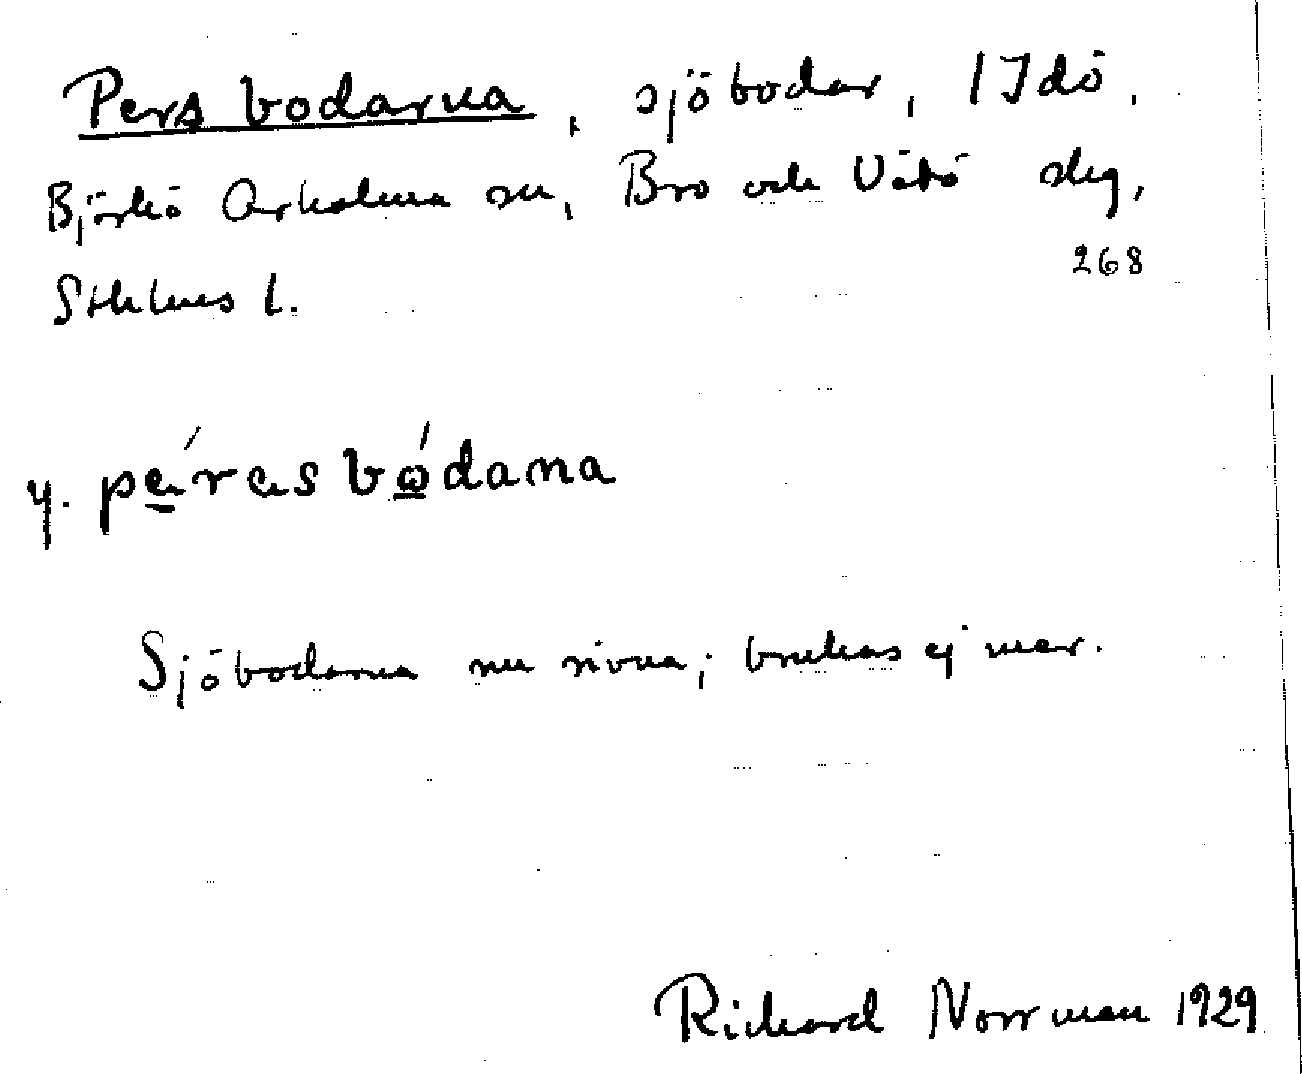 Pers bodarna, sjöbodar, 1 Idö,
Björkö Arholma sn, Bro och Vätö slg,
268
Sthlms l.
y. pǽræs bódana
Sjöbodarna nu rivna; brukas ej mer.
Richard Norrman 1929